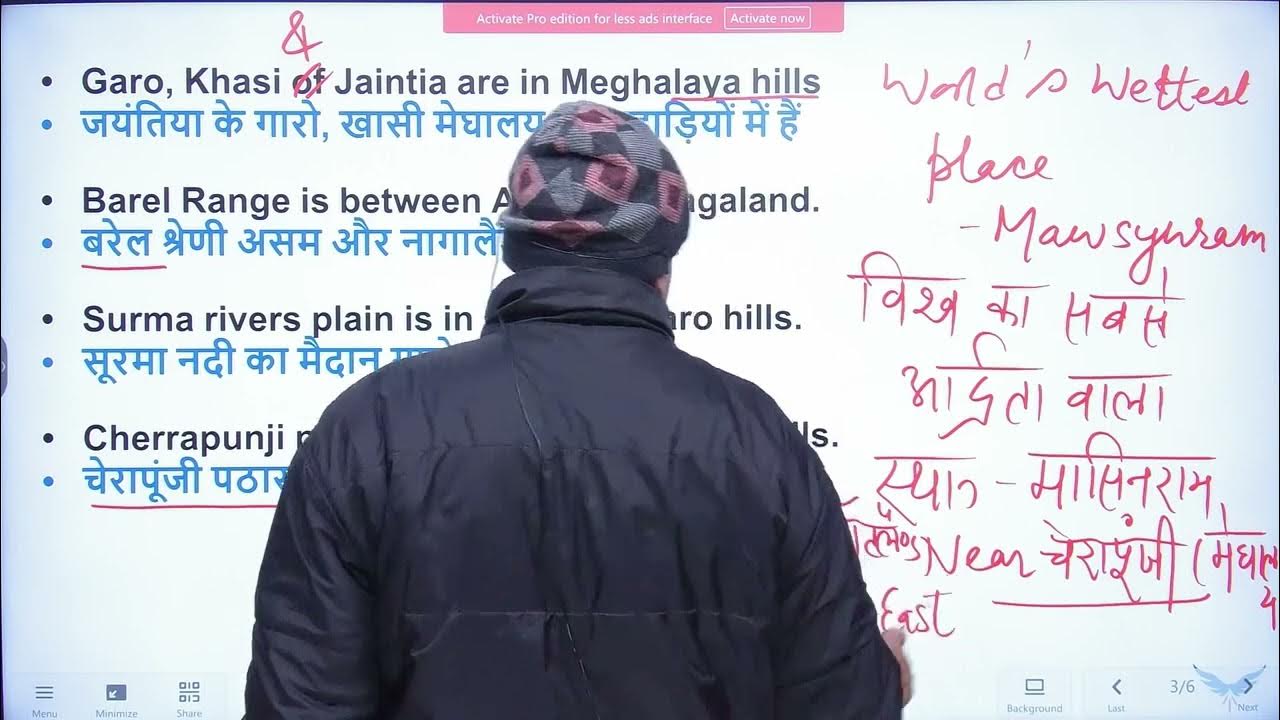 Activate Pro edition for less ads interface Activate now
&
• Garo, Khasi of Jaintia are in Meghalaya hills
• जयंतिया के गारो, खासी मेघालय में हैं
• Barel Range is between
• बरेल श्रेणी असम और
• Surma rivers plain is in hills.
• सूरमा नदी का मैदान
• Cherrapunji
• चेरापूंजी
World's Wettest
place
- Mawsynram
विश्व का सबसे
आर्द्रता वाला
स्थान - मासिनराम
Near चेरापूंजी (मेघालय
East
Menu
Minimize
Share
Background
Last
3/6
Next